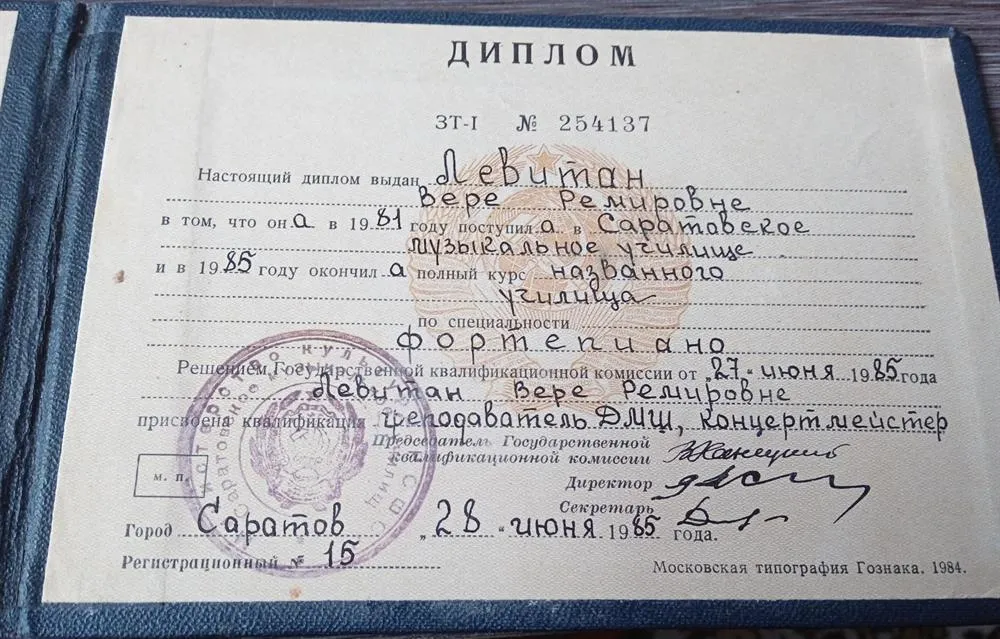 ДИПЛОМ
ЗТ-I № 254137
Настоящий диплом выдан Левитан
Вере Ремировне
в том, что он а в 1981 году поступил а в Саратовское
музыкальное училище
и в 1985 году окончил а полный курс названного
училища
по специальности
фортепиано
Решением Государственной квалификационной комиссии от „27“ июня 1985 года
Левитан Вере Ремировне
присвоена квалификация преподаватель ДМШ, концертмейстер
Председатель Государственной
квалификационной комиссии
Директор
Секретарь
м. п.
Город Саратов „28“ июня 1985 года.
Регистрационный № 15
Московская типография Гознака. 1984.